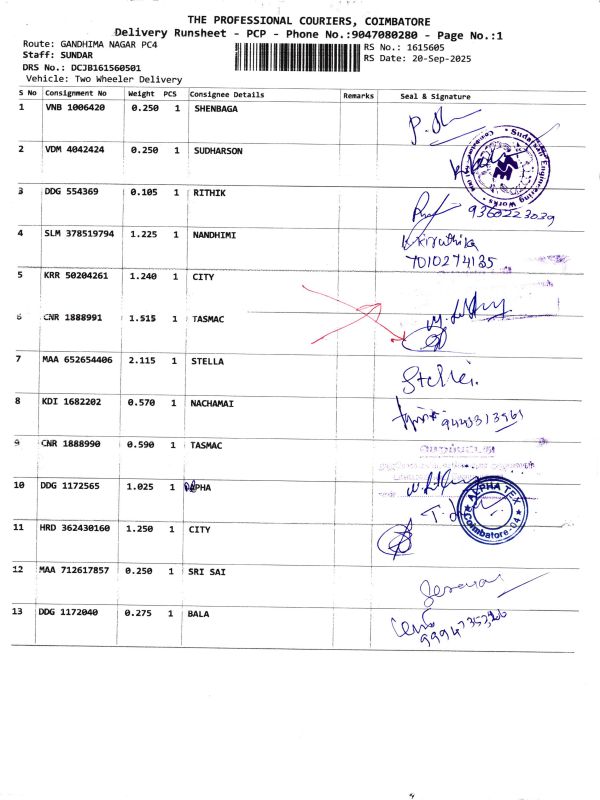 THE PROFESSIONAL COURIERS, COIMBATORE
Delivery Runsheet - PCP - Phone No.:9047080280 - Page No.:1
Route: GANDHIMA NAGAR PC4
RS No.: 1615605
Staff: SUNDAR
RS Date: 20-Sep-2025
DRS No.: DCJB161560501
Vehicle: Two Wheeler Delivery
S No Consignment No Weight PCS Consignee Details Remarks Seal & Signature
1 VNB 1006420 0.250 1 SHENBAGA
2 VDM 4042424 0.250 1 SUDHARSON
Sudarsan Engineering Works
3 DDG 554369 0.105 1 RITHIK
9360223039
4 SLM 378519794 1.225 1 NANDHIMI
K.kiruthika
7010274135
5 KRR 50204261 1.240 1 CITY
6 CNR 1888991 1.515 1 TASMAC
7 MAA 652654406 2.115 1 STELLA
Stella.
8 KDI 1682202 0.570 1 NACHAMAI
9443313961
9 CNR 1888990 0.590 1 TASMAC
10 DDG 1172565 1.025 1 ALPHA
ALPHA TEX
Coimbatore-04
11 HRD 362430160 1.250 1 CITY
12 MAA 712617857 0.250 1 SRI SAI
13 DDG 1172040 0.275 1 BALA